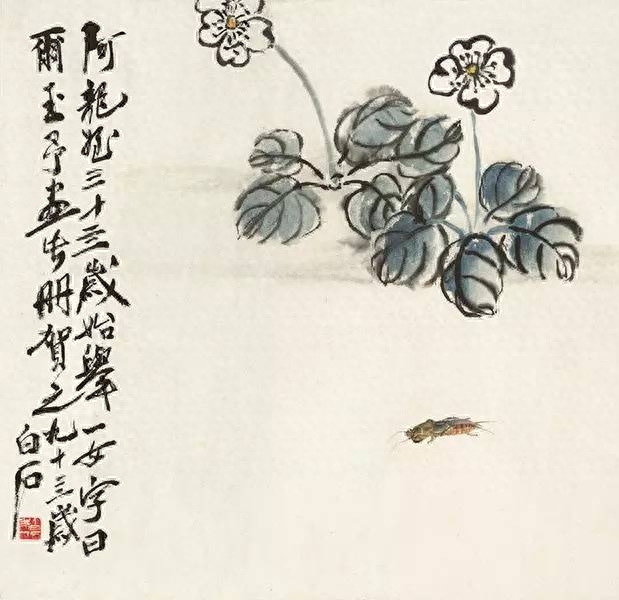 阿龍三十三歲始舉一女字曰
爾玉予畫此冊賀之九十三歲
白石